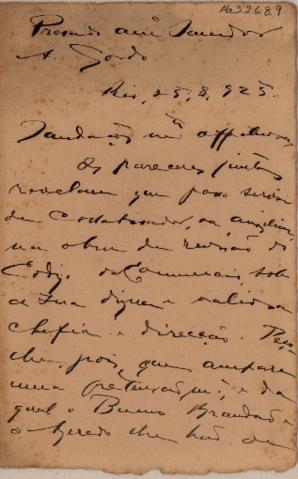 Presado am.º Senador
A. Gordo
Rio, 25, 8, 925.
Saudações m.to affetuosas
Os pareceres juntos
revelam que posso servir
de Collaborador, ou auxiliar
na obra de revisão do
Codigo Commercial, sob
a sua digna e valiosa
chefia e direcção. Peço
lhe, pois, que ampare
uma pretensão, e da
qual o Bueno Brandão e
o Azeredo lhe hão de